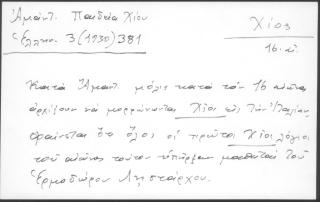 Ἀμάντ. Παιδεία Χίου
Ἑλλην. 3 (1930) 381
Χίος
16. αἰ.
Κατὰ Ἀμαντ. μόλις κατὰ τὸν 16 αἰῶνα
ἀρχίζουν νὰ μορφώνωνται Χῖοι εἰς τὴν Ἰταλίαν.
φαίνεται ὅτι ὅλοι οἱ πρῶτοι Χῖοι λόγιοι
τοῦ αἰῶνος τούτου ὑπῆρξαν μαθηταὶ τοῦ
Ἑρμοδώρου Ληστάρχου.